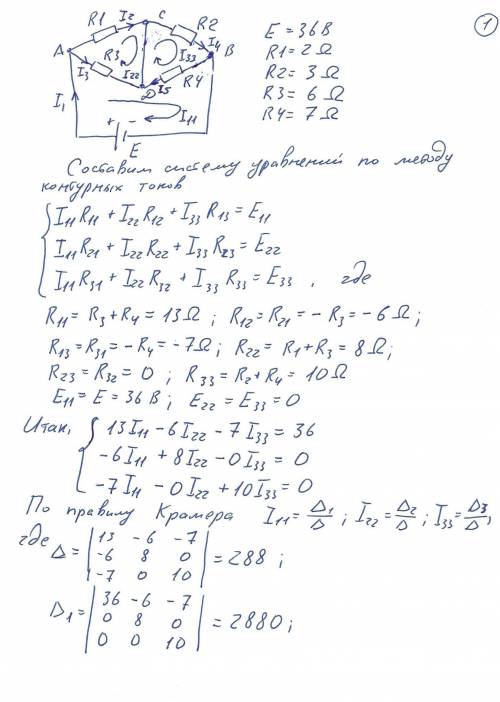 1
R1 I2 C R2
I4
A R3 I33 B
I3 I22 I5 R4
D
I1 + - I11
E
E = 36В
R1 = 2Ω
R2 = 3Ω
R3 = 6Ω
R4 = 7Ω
Составим систему уравнений по методу
контурных токов
I11 R11 + I22 R12 + I33 R13 = E11
I11 R21 + I22 R22 + I33 R23 = E22
I11 R31 + I22 R32 + I33 R33 = E33 , где
R11 = R3 + R4 = 13Ω ; R12 = R21 = - R3 = -6Ω ;
R13 = R31 = -R4 = -7Ω ; R22 = R1 + R3 = 8Ω ;
R23 = R32 = 0 ; R33 = R2 + R4 = 10Ω
E11 = E = 36 В ; E22 = E33 = 0
Итак, { 13I11 - 6I22 - 7I33 = 36
-6I11 + 8I22 - 0I33 = 0
-7I11 - 0I22 + 10I33 = 0
По правилу Крамера I11 = Δ1/Δ ; I22 = Δ2/Δ ; I33 = Δ3/Δ ,
где Δ = | 13 -6 -7 |
| -6 8 0 | = 288 ;
| -7 0 10 |
Δ1 = | 36 -6 -7 |
| 0 8 0 | = 2880 ;
| 0 0 10 |